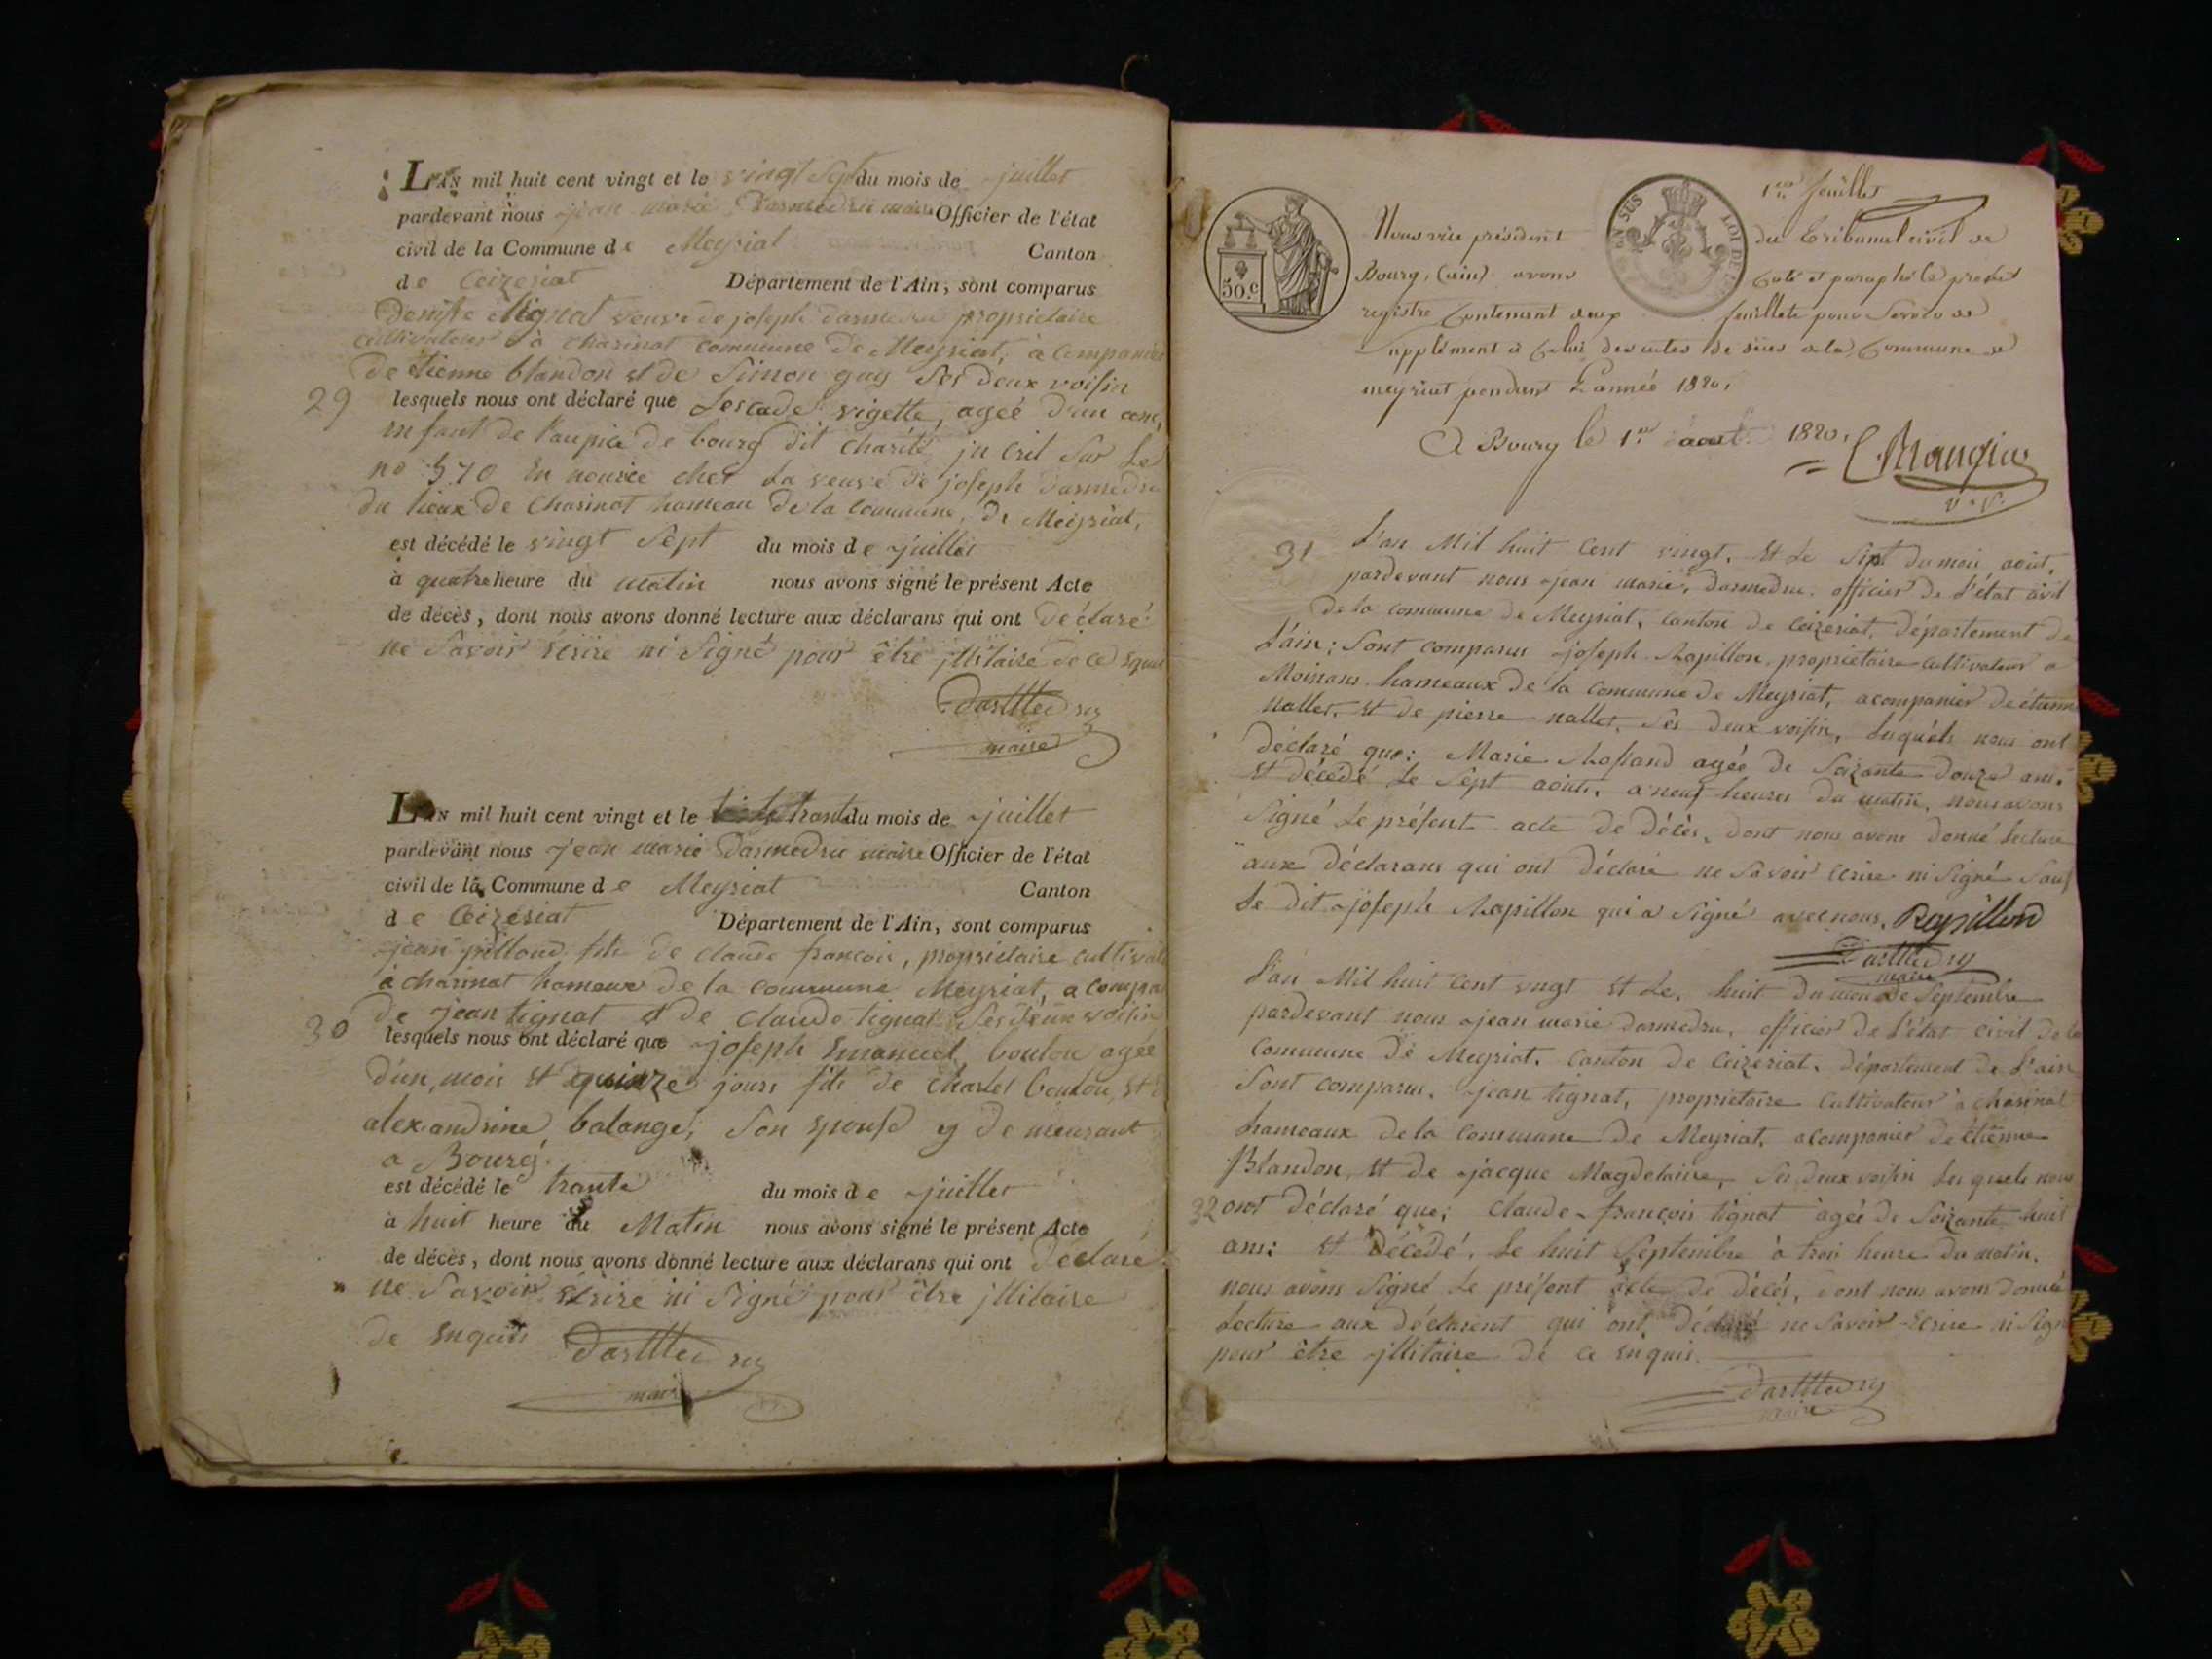 L'AN mil huit cent vingt et le vingt sept du mois de juillet
pardevant nous jean marie Darmedru maire Officier de l'état
civil de la Commune de Meyriat Canton
de Ceizeriat Département de l'Ain, sont comparus
Denise tignat veuve de joseph darmedru proprietaire
cultivateur à charinat commune de Meyriat, à companier
de étienne blandon et de Simon guy Ses deux voisin
29 lesquels nous ont déclaré que vigette, ageé d'un ans,
enfant de l'aupice de bourg dit charité in crit Sur Le
no 570 En nourice chez La veuve de joseph darmedru
du lieux de Charinat hameau De la Commune, de Meyriat,
est décédé le vingt Sept du mois de juillet
à quatre heure du matin nous avons signé le présent Acte
de décès, dont nous avons donné lecture aux déclarans qui ont déclaré
ne Savoir écrire ni Signé pour être jllitaire de ce
DarMedru
maire
L'AN mil huit cent vingt et le trante du mois de juillet
pardevant nous jean marie Darmedru maire Officier de l'état
civil de la Commune de Meyriat Canton
de Ceizériat Département de l'Ain, sont comparus
jean fils de claude françois, propriétaire cultivate
à charinat hameaux de la commune Meyriat, a compa
de jean tignat et de claude tignat Ses deux voisin
30 lesquels nous ont déclaré que joseph Emanuel, boulou agée
d'un, mois et quinze jours fils de Charles boulou, et d
alexandrine balange, Son epouse y de meurant
a Bourg.
est décédé le trante du mois de juillet
à huit heure du Matin nous avons signé le présent Acte
de décès, dont nous avons donné lecture aux déclarans qui ont déclaré
ne Savoir écrire ni Signé pour être jllitaire
de enquis DarMedru
maire
1er feuillet
Nous vice président du tribunal civil de
Bourg, (ain) avons coté et paraphé le présent
registre contenant deux feuillets pour Servir de
supplément à celui des actes de décès de la Commune de
meyriat pendant l'année 1820,
A Bourg le 1er aout 1820,
v. P.
50.c
EN SUS LOI DE
31 L'an Mil huit Cent vingt, et Le Sept du mois août,
pardevant nous jean marie, darmedru. officier de l'état civil
de la commune de Meyriat, canton de Ceizeriat, département de
L'ain; Sont comparus joseph Rapillon, propriétaire cultivateur a
Moinans hameaux de la commune de Meyriat, acompanier de étienne
nallet, et de pierre nallet, Ses deux voisin, Lesquels nous ont
déclaré que: Marie ageé de Soizante douze ans.
et décédé Le Sept aout, a neuf heures du matin, nous avons
Signé Le présent acte de décès, dont nous avons donné Lecture
aux déclarans qui ont déclaré ne Savoir écrire ni Signé Sauf
Le dit joseph Rapillon qui a Signé avec nous, Rapillon
DarMedru
maire
L'an Mil huit Cent vingt et Le, huit du mois de Septembre
pardevant nous jean marie darmedru, officier de l'état civil de la
Commune de Meyriat, Canton de Ceizeriat, département de L'ain
Sont comparus, jean tignat, propriétaire Cultivateur à charinat
hameaux de la Commune de Meyriat, acompanier de étienne
Blandon, et de jacque Magdelaine, Ses deux voisin Lesquels nous
32 ont déclaré que; claude-françois tignat àgée de Soizante huit
ans: et décédé, Le huit Septembre à trois heure du matin,
nous avons Signé Le présent acte de décès, dont nous avons donnée
Lecture aux déclarent qui ont, déclaré ne Savoir écrire ni Sign
pour être jllitaire de ce enquis.
DarMedru
maire